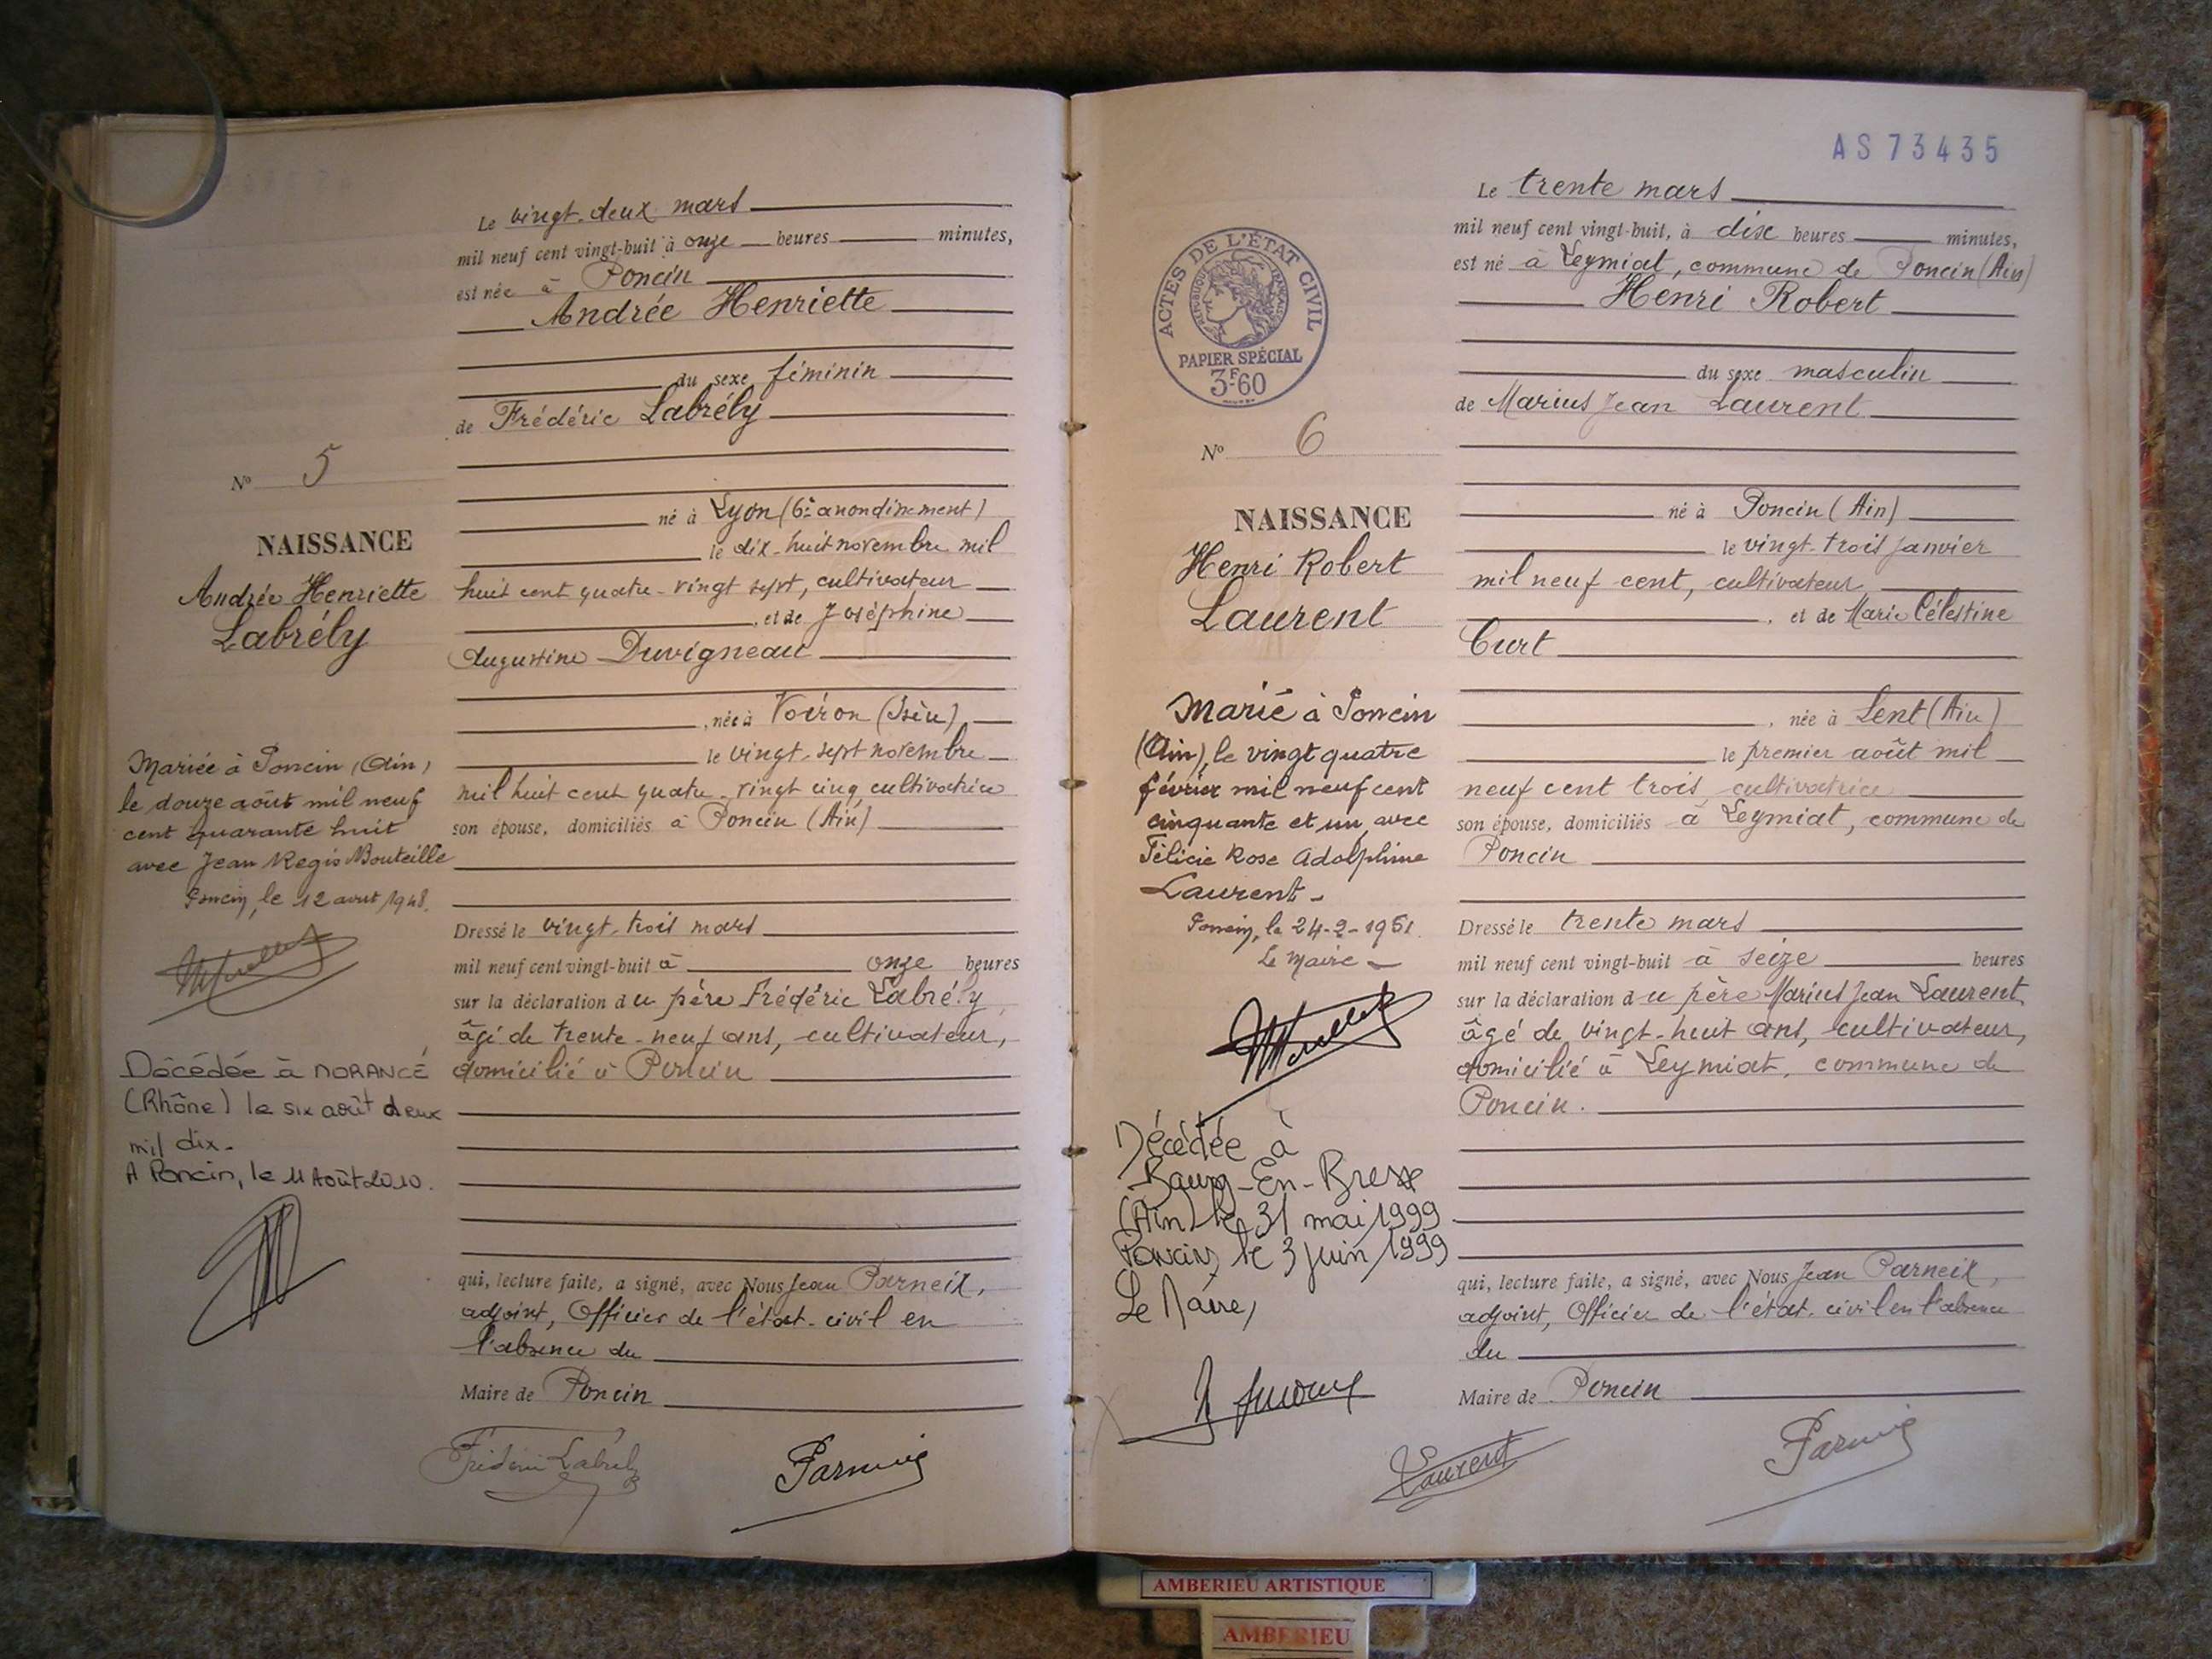 Le vingt-deux mars
mil neuf cent vingt-huit à onze heures minutes,
est née à Poncin
Andrée Henriette
du sexe féminin
de Frédéric Labrély
né à Lyon (6e arrondissement)
le dix-huit novembre mil
huit cent quatre-vingt sept, cultivateur
, et de Joséphine
Augustine Duvigneau
, née à Voiron (Isère)
le vingt-sept novembre
mil huit cent quatre-vingt cinq cultivatrice
son épouse, domiciliés à Poncin (Ain)
Dressé le vingt-trois mars
mil neuf cent vingt-huit à onze heures
sur la déclaration du père Frédéric Labrély,
âgé de trente-neuf ans, cultivateur,
domicilié à Poncin
qui, lecture faite, a signé, avec Nous Jean Parneix,
adjoint, Officier de l'état-civil en
l'absence du
Maire de Poncin
Frédéric Labrély
Nº 5
NAISSANCE
Andrée Henriette
Labrély
Mariée à Poncin (Ain)
le douze août mil neuf
cent quarante huit
avec Jean Regis Bouteille
Poncin, le 12 août 1948.
Décédée à MORANCÉ
(Rhône) le six août deux
mil dix.
A Poncin, le 11 Août 2010.
AS 73435
Le trente mars
mil neuf cent vingt-huit, à dix heures minutes,
est né à Leymiat, commune de Poncin (Ain)
Henri Robert
du sexe masculin
de Marius Jean Laurent
né à Poncin (Ain)
le vingt-trois janvier
mil neuf cent, cultivateur
, et de Marie Célestine
Curt
, née à Lent (Ain)
le premier août mil
neuf cent trois cultivatrice
son épouse, domiciliés à Leymiat, commune de
Poncin
Dressé le trente mars
mil neuf cent vingt-huit à seize heures
sur la déclaration du père Marius Jean Laurent,
âgé de vingt-huit ans, cultivateur,
domicilié à Leymiat, commune de
Poncin.
qui, lecture faite, a signé, avec Nous Jean Parneix,
adjoint, Officier de l'état-civil en l'absence
du
Maire de Poncin
Laurent
ACTES DE L'ÉTAT CIVIL
RÉPUBLIQUE FRANÇAISE
PAPIER SPÉCIAL
3F60
Nº 6
NAISSANCE
Henri Robert
Laurent
Marié à Poncin
(Ain), le vingt quatre
février mil neuf cent
cinquante et un, avec
Félicie Rose Adolphine
Laurent-
Poncin, le 24-2-1951.
Le Maire
Décédée à
Bourg-En-Bresse
(Ain) le 31 mai 1999
Poncin, le 3 juin 1999
Le Maire,
AMBERIEU ARTISTIQUE
AMBERIEU